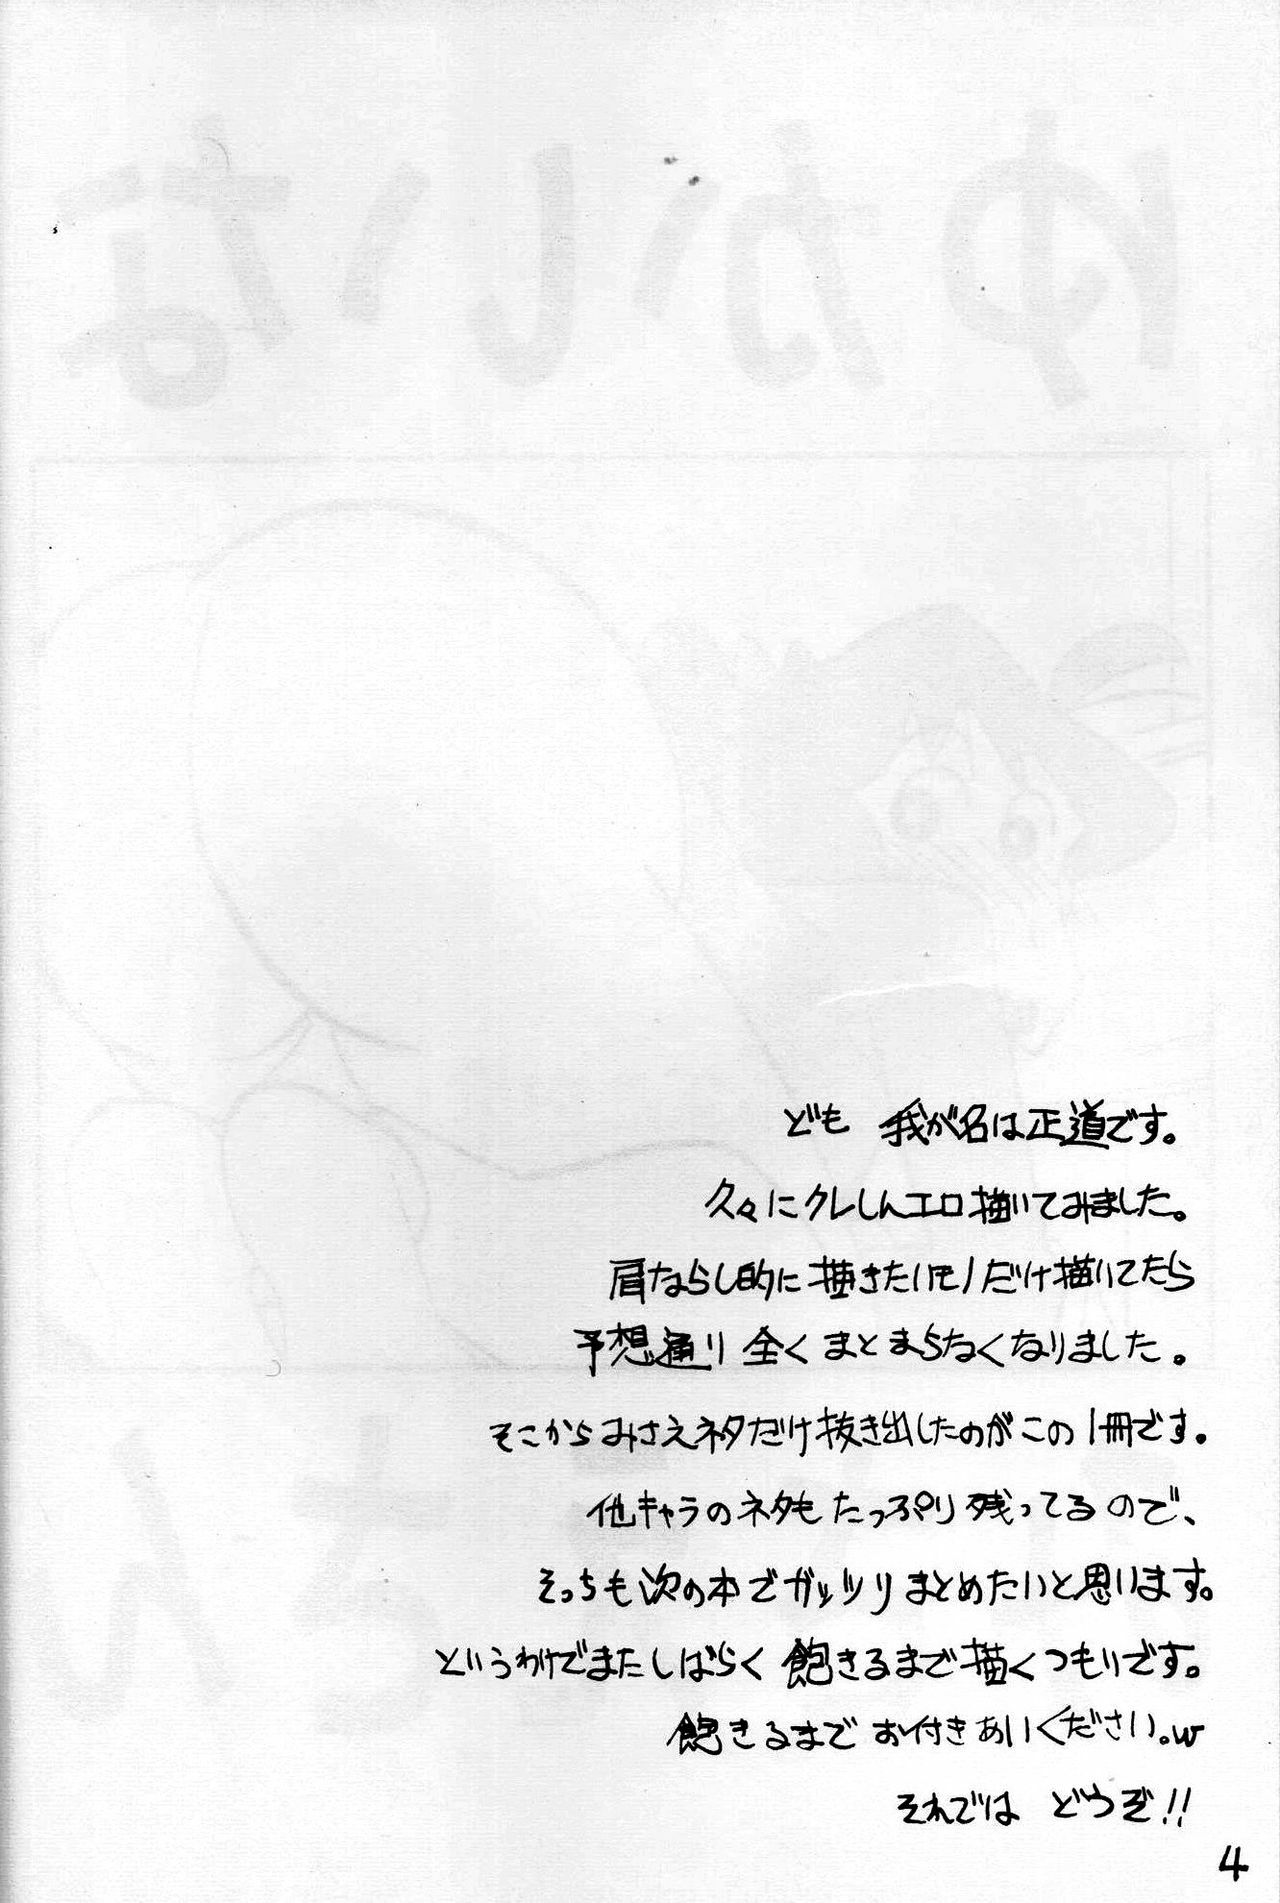 ゆかいな
ども 我が名は正道です。
久々にクレしんエロ描いてみました。
肩ならし的に描きたいモノだけ描いてたら
予想通り全くまとまらなくなりました。
そこからみさえネタだけ抜き出したのがこの1冊です。
他キャラのネタもたっぷり残ってるので、
そっちも次の本でガッツリまとめたいと思います。
というわけでまたしばらく飽きるまで描くつもりです。
飽きるまでお付きあいください。w
それでは どうぞ!!
4